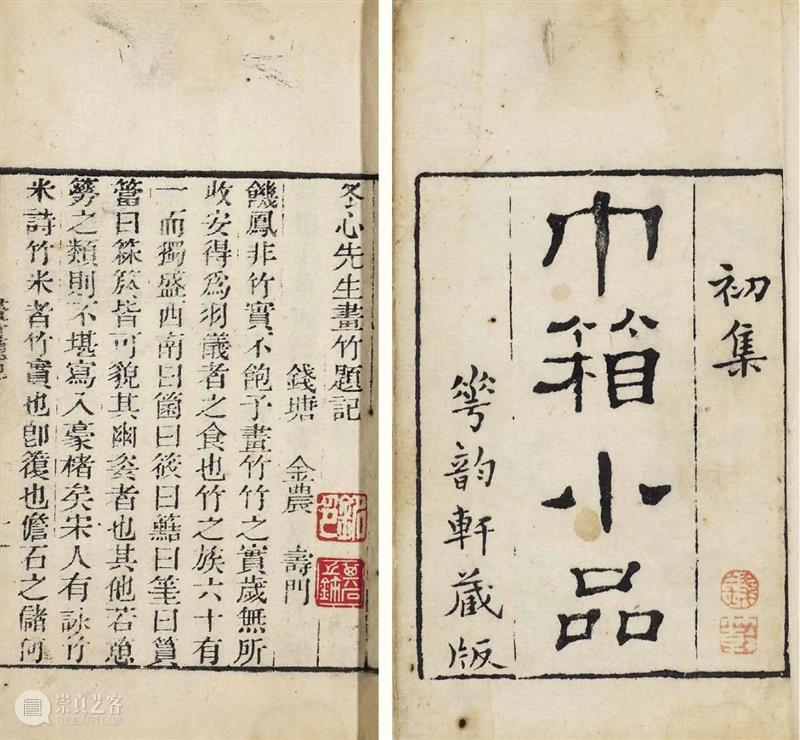 初集
巾箱小品
華韵軒藏版
冬心先生畫竹題記
錢塘 金農 壽門
饑鳳非竹實不飽予畫竹竹之實歲無所
收安得爲羽儀者之食也竹之族六十有
一而獨盛西南曰箇曰筱曰曰曰篔
簹曰箖箊皆可貌其幽姿者也其他若
簩之類則不堪寫入豪楮矣宋人有詠竹
米詩竹米者竹實也卽也儋石之儲何
崇真艺客
TRUEART.COM